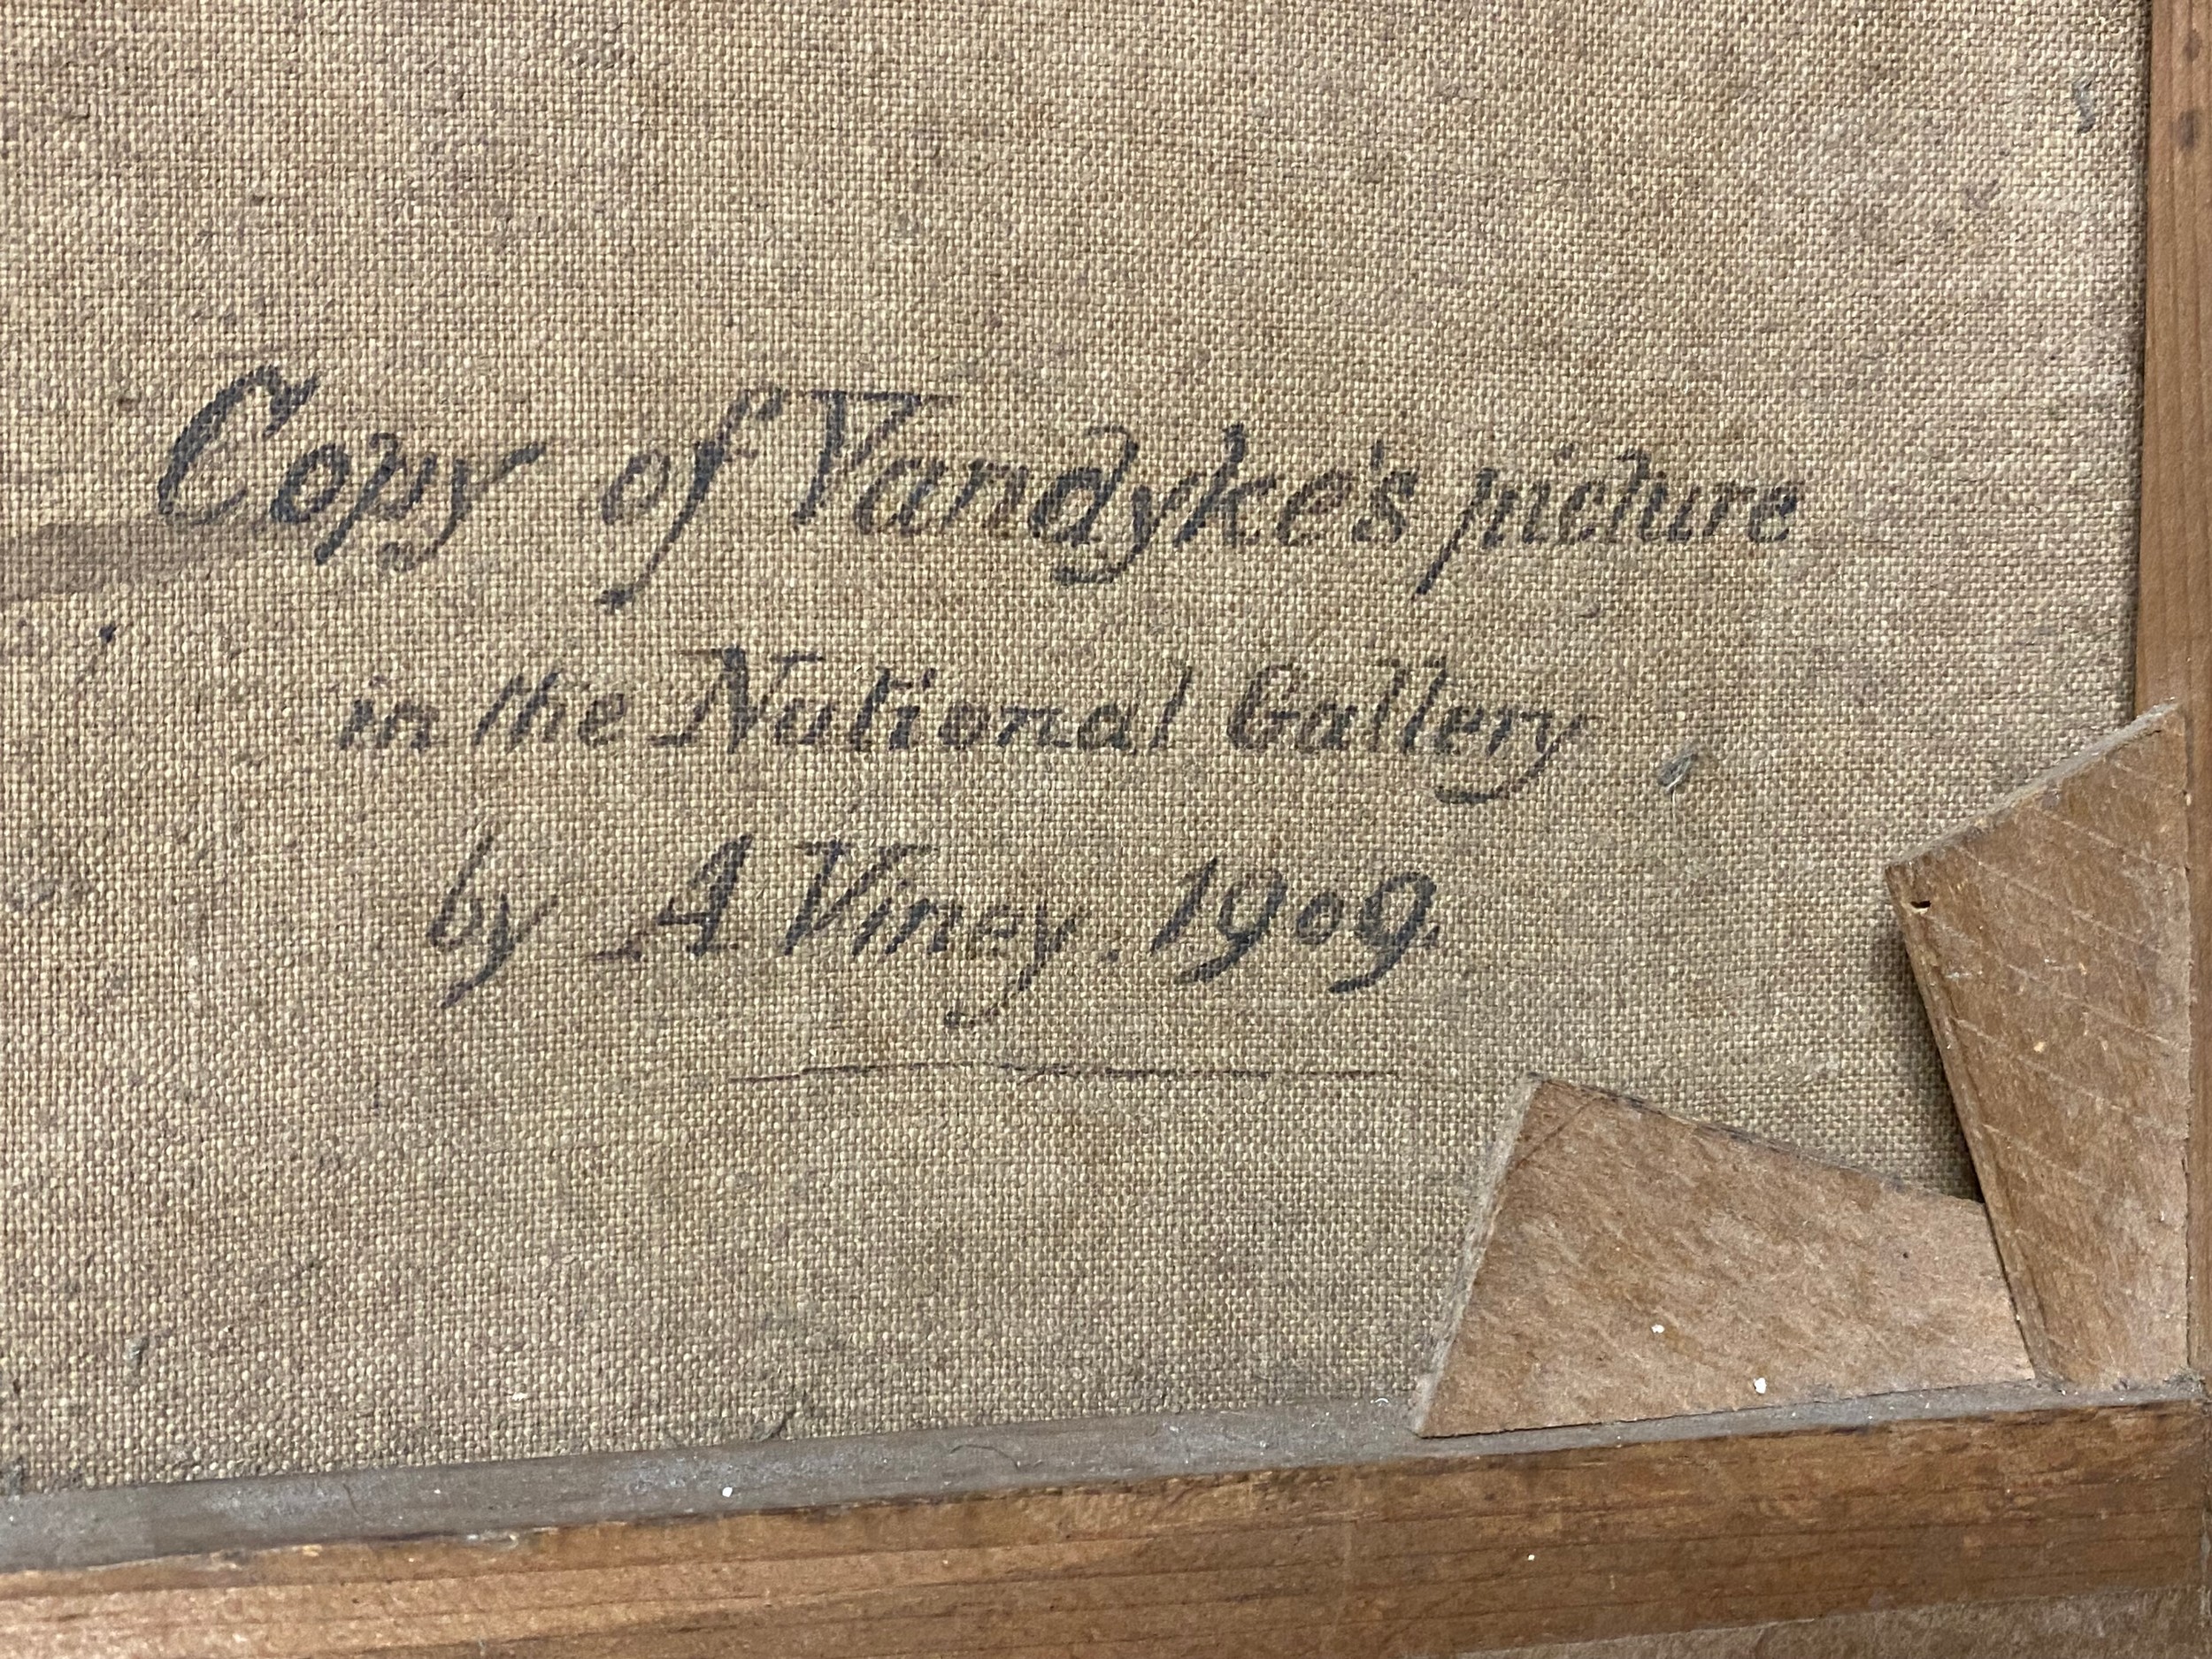 Copy of Vandyke's picture
in the National Gallery
by A Viney. 1909.